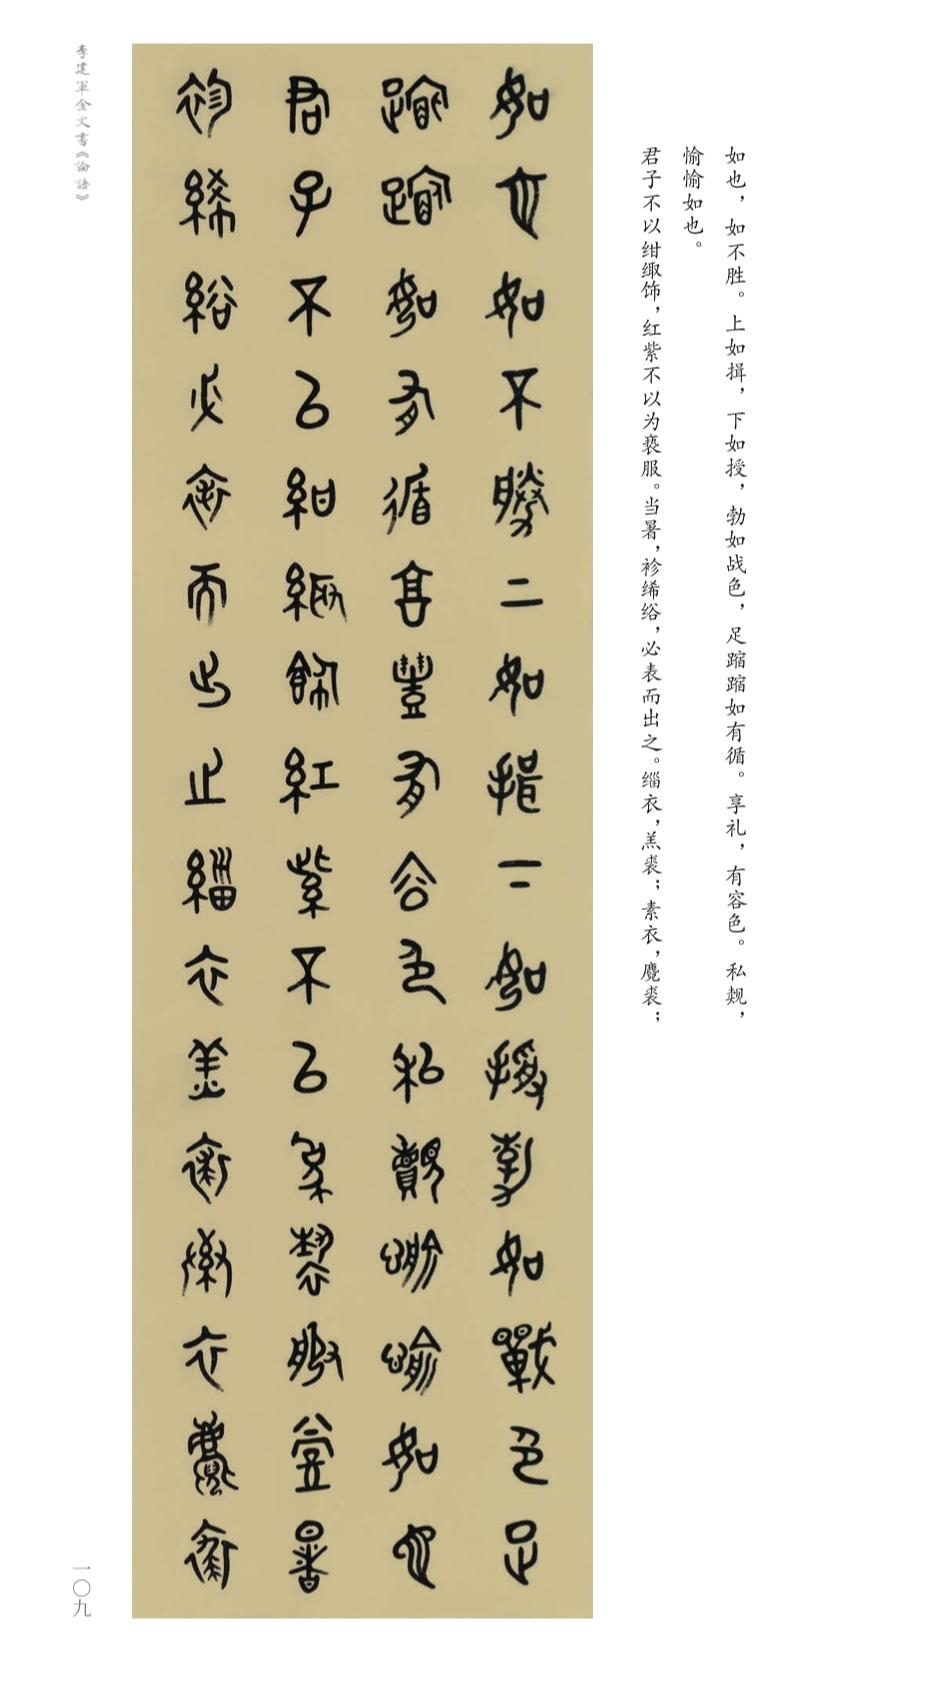 如也，如不胜。上如揖，下如授，勃如战色，足蹜蹜如有循。享礼，有容色。私觌，
愉愉如也。
君子不以绀緅饰，红紫不以为亵服。当暑，袗絺绤，必表而出之。缁衣，羔裘；素衣，麑裘；
如也如不勝二如揖二如授勃如戰色足
蹜蹜如有循享豊有容色私覿愉愉如也
君子不以紺緅飾紅紫不以為褻服當暑
袗絺綌必表而出之緇衣羔裘素衣麑裘
李建軍金文書《論語》
一〇九